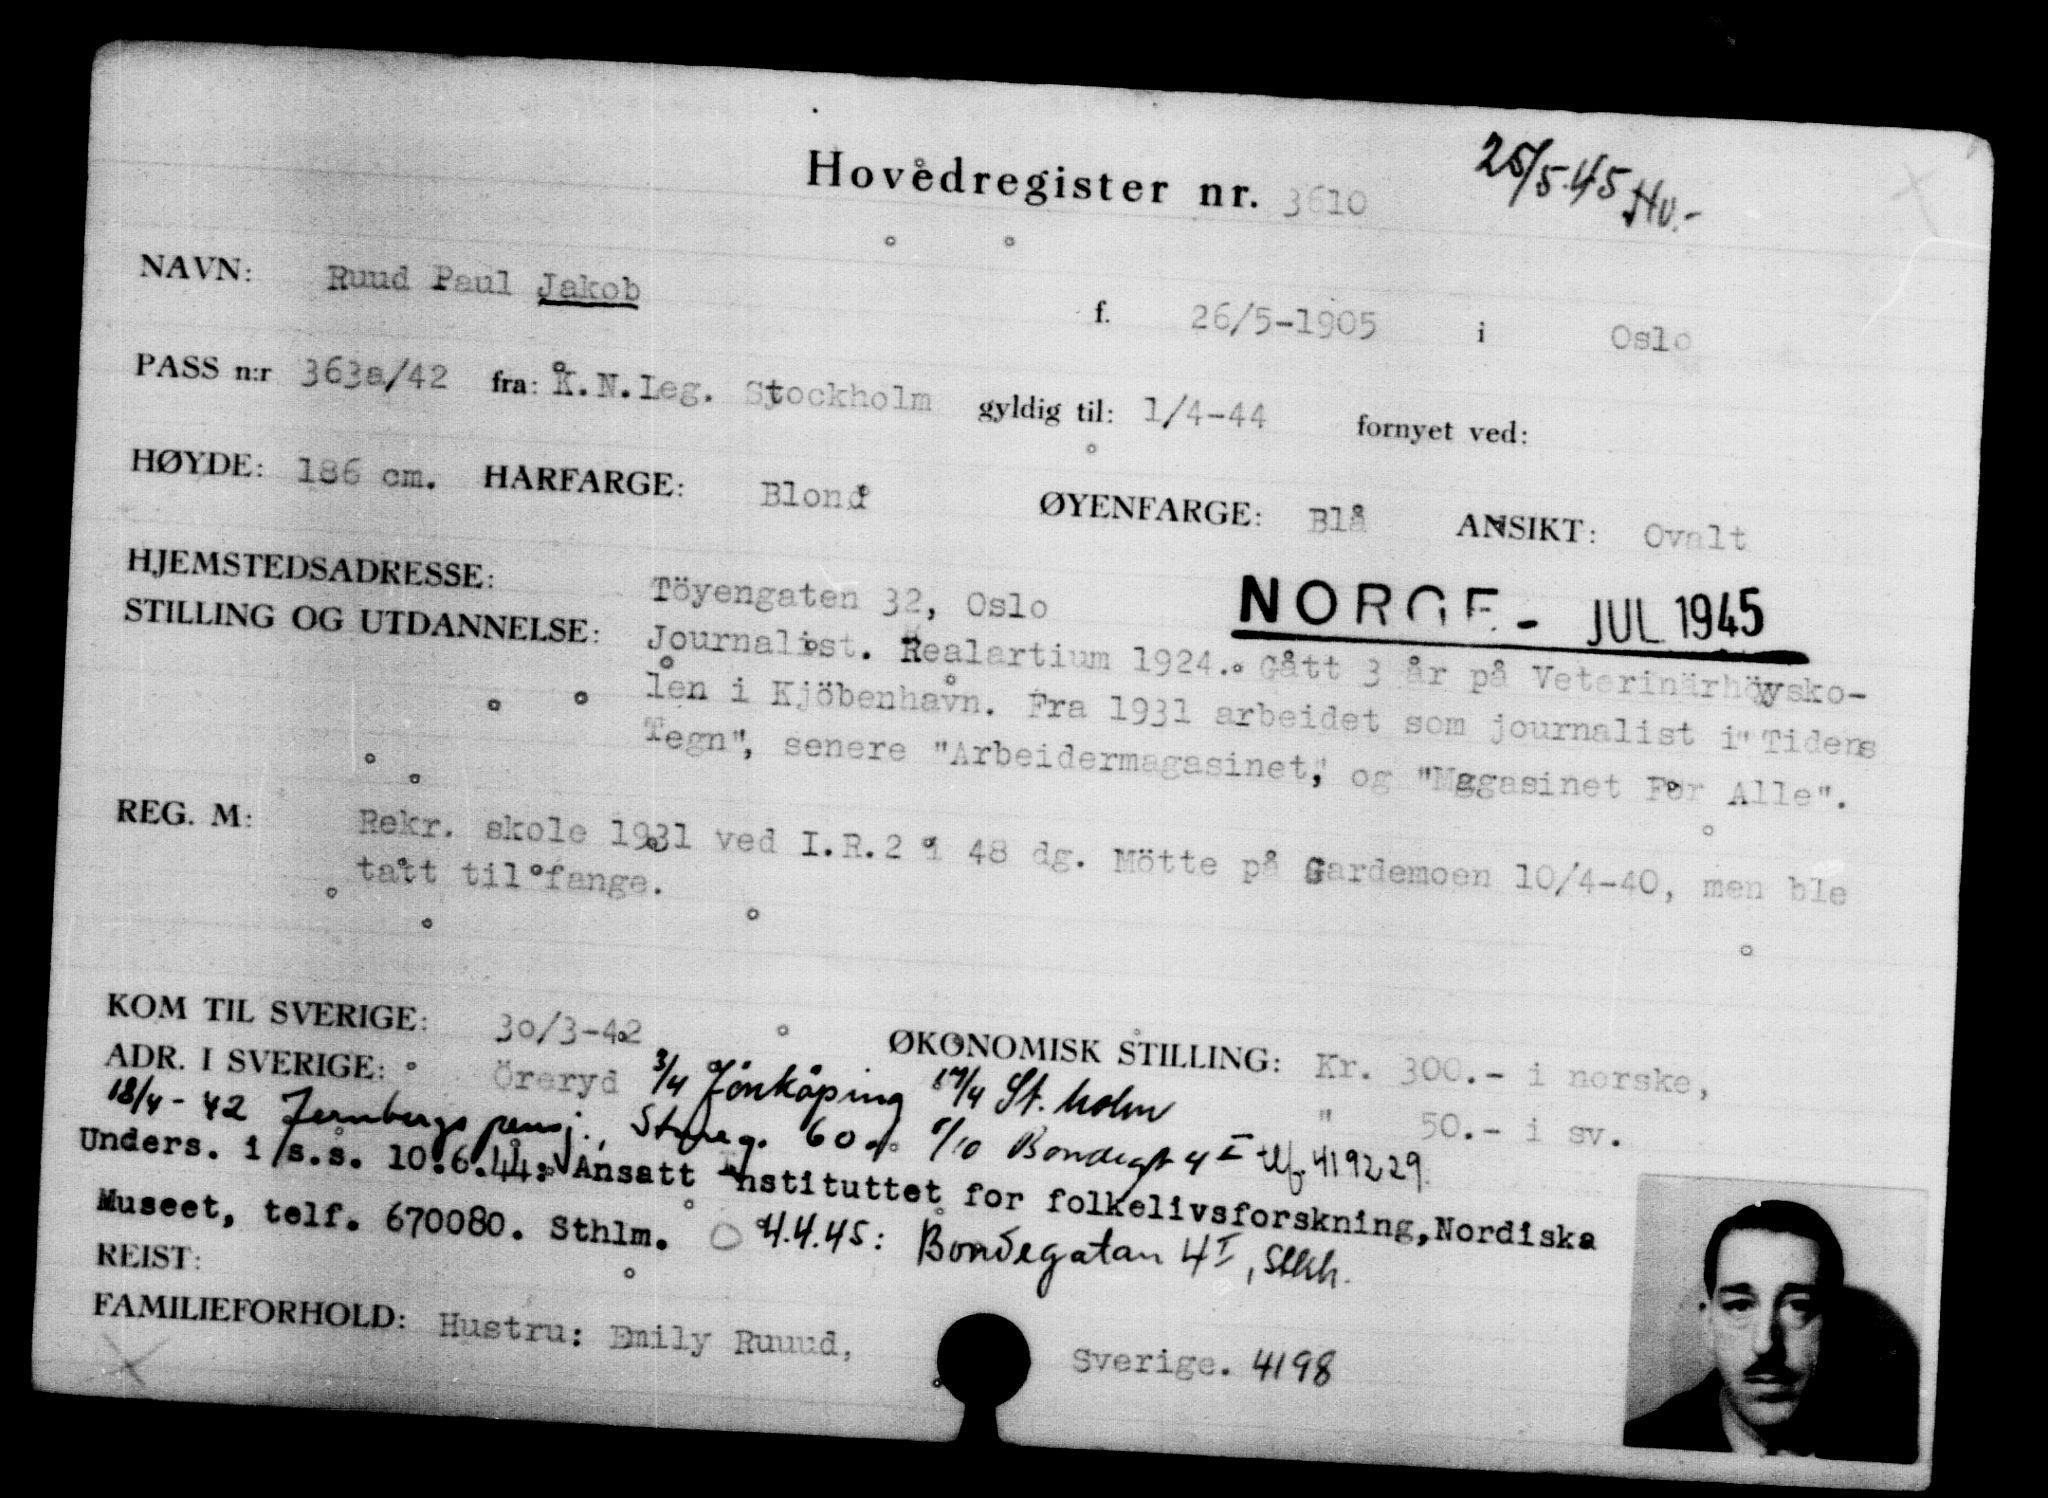 Hovedregister nr. 3610
25/5.45 Hv.-
NAVN: Ruud Paul Jakob f. 26/5-1905 i Oslo
PASS n:r 363a/42 fra: K.N.Leg. Stockholm gyldig til: 1/4-44 fornyet ved:
HØYDE: 186 cm. HÅRFARGE: Blond ØYENFARGE: Blå ANSIKT: Ovalt
HJEMSTEDSADRESSE: Töyengaten 32, Oslo
NORGE - JUL 1945
STILLING OG UTDANNELSE: Journalist. Realartium 1924. Gått 3 år på Veterinärhöysko-
len i Kjöbenhavn. Fra 1931 arbeidet som journalist i "Tidens
Tegn", senere "Arbeidermagasinet," og "Magasinet For Alle".
REG. M: Rekr. skole 1931 ved I.R.2 i 48 dg. Mötte på Gardemoen 10/4-40, men ble
tatt til fange.
KOM TIL SVERIGE: 30/3-42 ØKONOMISK STILLING: Kr. 300.- i norske,
ADR. I SVERIGE: Öreryd 3/4 Jönköping 17/4 St. holm " 50.- i sv.
18/4-42 Jernbergs pensj., Stureg. 60. /10 Bondegt 4 I tlf. 419229
Unders. i s.s. 10.6.44: Ansatt Instituttet for folkelivsforskning, Nordiska
Museet, telf. 670080. Sthlm. 4.4.45: Bondegatan 4 I, Sthlm.
REIST:
FAMILIEFORHOLD: Hustru: Emily Ruuud, Sverige. 4198